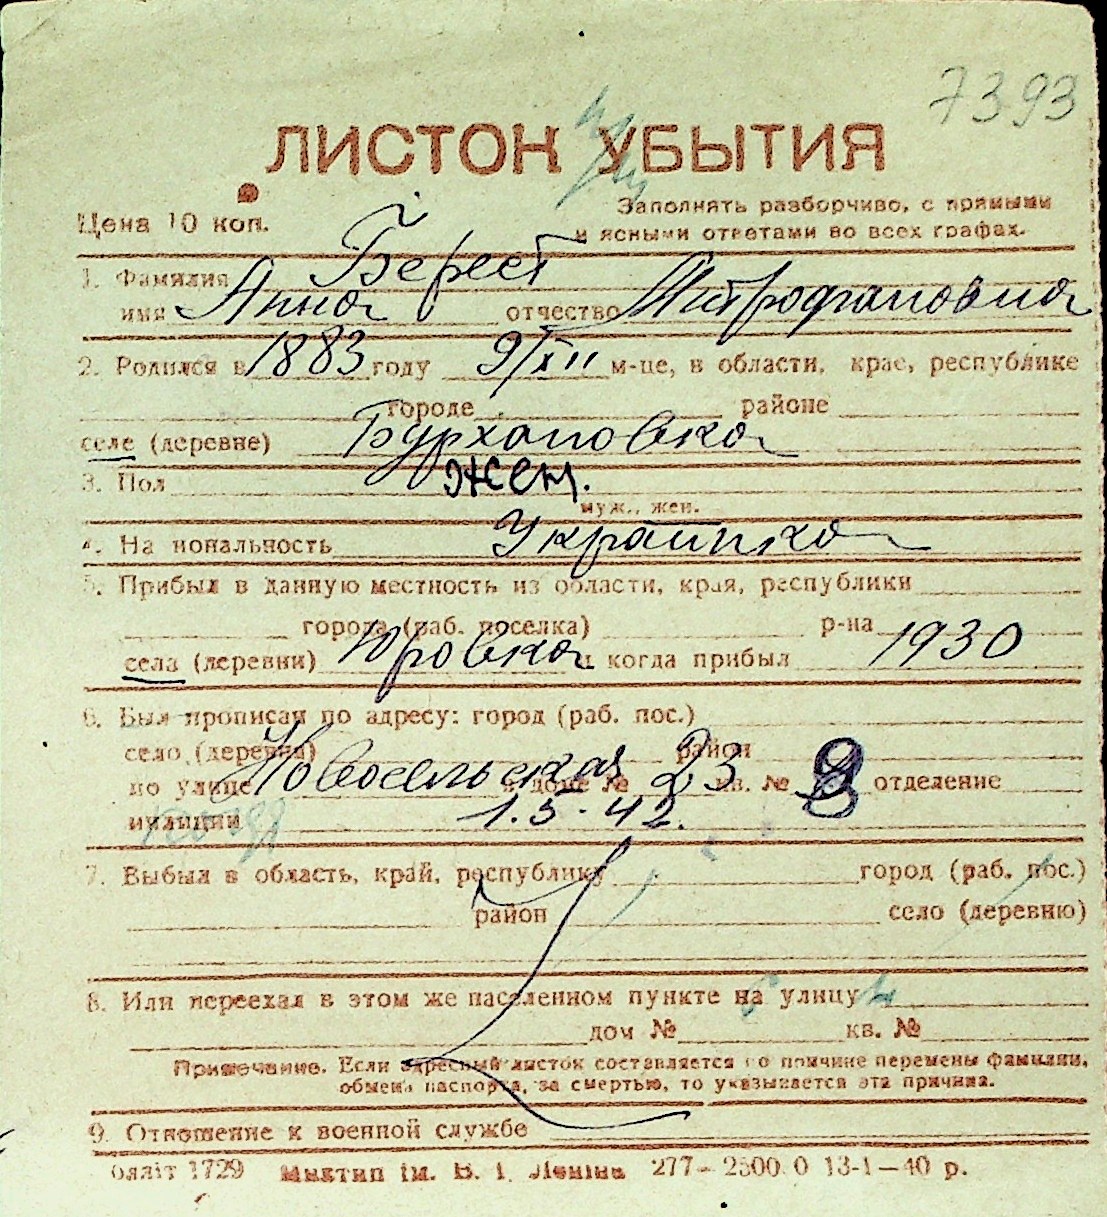 7393
ЛИСТОК УБЫТИЯ
Цена 10 коп.
Заполнять разборчиво, с прямыми
и ясными ответами во всех графах.
1. Фамилия Берест
имя Анна отчество Митрофановна
2. Родился в 1883 году 9/XII м-це, в области, крае, республике
городе районе
селе (деревне) Бурхановка
3. Пол жен.
муж., жен.
4. Национальность Украинка
5. Прибыл в данную местность из области, края, республики
города (раб. поселка) р-на
села (деревни) Юровка и когда прибыл 1930
6. Был прописан по адресу: город (раб. пос.)
село (деревня) район
по улице Новосельская в доме № 23 кв. № отделение
милиции 1.5-42.
7. Выбыл в область, край, республику город (раб. пос.)
район село (деревню)
8. Или переехал в этом же населенном пункте на улицу
дом № кв. №
Примечание. Если адресный листок составляется по причине перемены фамилии,
обмена паспорта, за смертью, то указывается эта причина.
9. Отношение к военной службе
1729 ім. В. І. Леніна 277— 13-1—40 р.